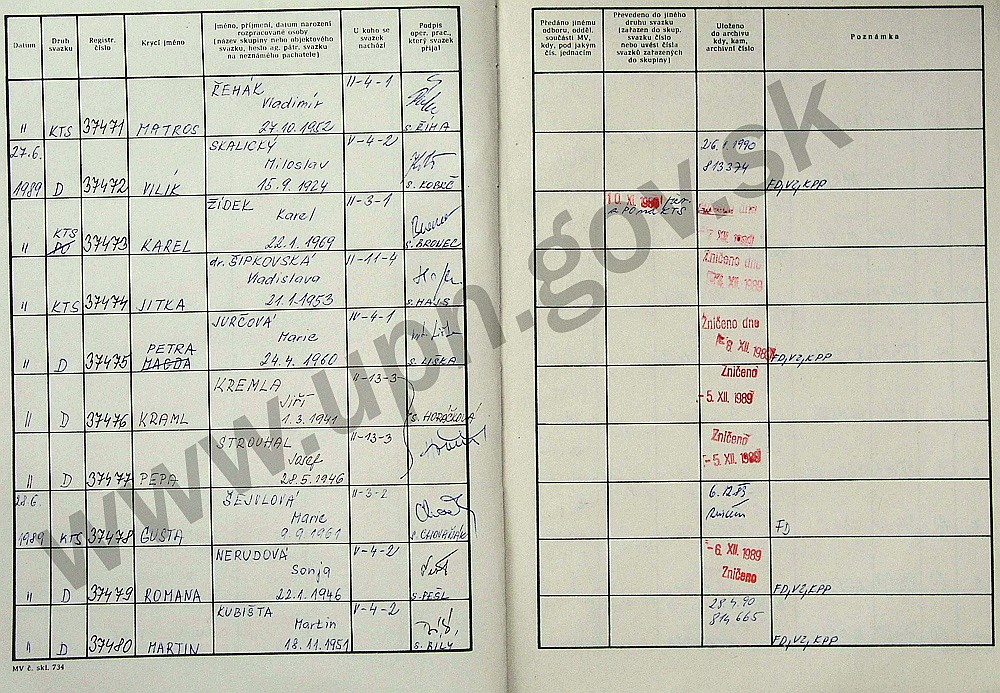 Datum
Druh svazku
Registr. číslo
Krycí jméno
Jméno, příjmení, datum narození
rozpracované osoby
(název skupiny nebo objektového
svazku, heslo ag. pátr. svazku
na neznámého pachatele)
U koho se
svazek
nachází
Podpis
oper. prac.,
který svazek
přijal
Předáno jinému
odboru, odděl.
součásti MV,
kdy, pod jakým
čís. jednacím
Převedeno do jiného
druhu svazku
(zařazen do skup.
svazku číslo
nebo uvést čísla
svazků zařazených
do skupiny)
Uloženo
do archivu
kdy, kam,
archivní číslo
Poznámka
ŘEHÁK II-4-1
Vladimír
" KTS 37471 MATROS 27.10.1952 s. ŘÍHA
27.6. SKALICKÝ V-4-2 26.1.1990
Miloslav 813374
1989 D 37472 VILÍK 15.9.1924 FD,VZ,KPP
ŽÍDEK II-3-1
KTS Karel
" PO 37473 KAREL 22.1.1969 s. BROVEC
dr. ŠIPKOVSKÁ II-11-4 Zničeno dne
Vladislava XII. 1989
" KTS 37474 JITKA 21.1.1953 s. HAJS
JURČOVÁ IV-4-1 Zničeno dne
PETRA Marie -8. XII. 1989
" D 37475 MAGDA 24.4.1960 s. LIŠKA FD,VZ,KPP
KREMLA II-13-3 Zničeno
Jiří -5. XII. 1989
" D 37476 KRAML 1.3.1941 s. HORÁČKOVÁ
STROUHAL II-13-3 Zničeno
Josef -5. XII. 1989
" D 37477 PEPA 28.5.1946
28.6. ŠEJVLOVÁ II-3-2 6.12.89
Marie
1989 KTS 37478 GUSTA 9.9.1961 FD
NERUDOVÁ V-4-2 -6. XII. 1989
Sonja Zničeno
" D 37479 ROMANA 22.1.1946 s. PEŠL FD,VZ,KPP
KUBIŠTA V-4-2 28.4.90
Martin 814665
" D 37480 MARTIN 18.11.1951 s. BÍLÝ FD,VZ,KPP
MV č. skl. 734
www.upn.gov.sk